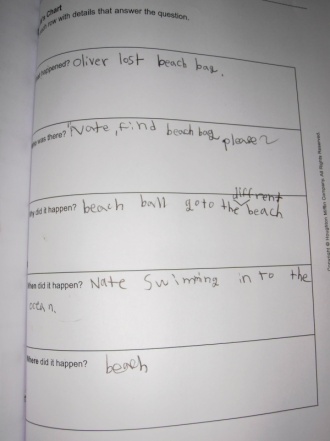 Chart
row with details that answer the question.
happened? Oliver lost beach bag.
was there? "Nate, Find beach bag please?
Why did it happen? beach ball goto the beach
diffrent
When did it happen? Nate Swimming in to the
ocean.
Where did it happen? beach
Copyright © Houghton Mifflin Company. All Rights Reserved.